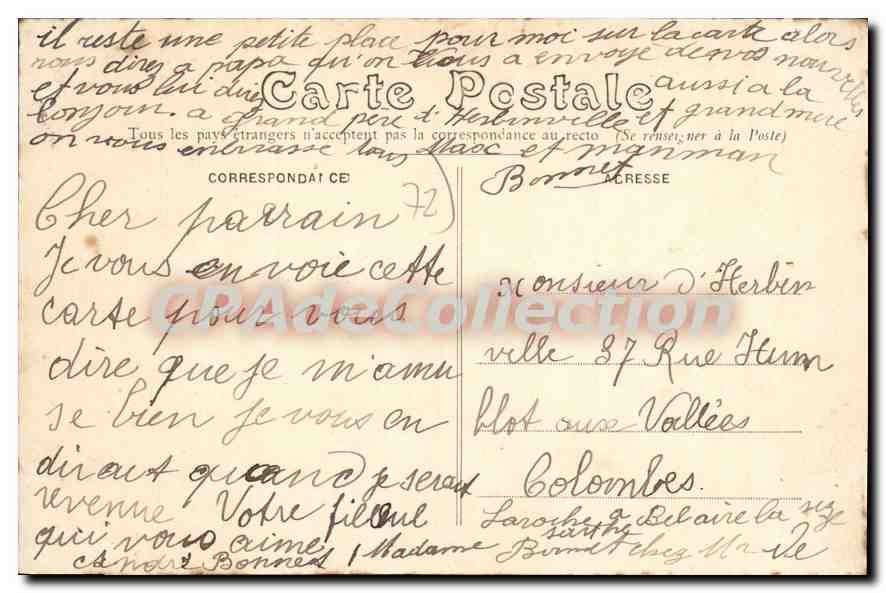 il reste une petite place pour moi sur la carte alors
vous direz a papa qu'on vous a envoyé de nos nouvelles
et vous lui direz aussi a la
bonjour. a grand père d'Herbinville et grand mère
on vous embrasse tous Maoc et manman
Bonnet
Carte Postale
Tous les pays étrangers n'acceptent pas la correspondance au recto (Se renseigner à la Poste)
CORRESPONDANCE
ADRESSE
72
Cher parrain
Je vous en voie cette
carte pour vous
dire que je m'amu
se bien je vous en
dirait quand je serait
revenue Votre filleul
qui vous aime
André Bonnet
Monsieur d'Herbin
ville 37 Rue Hum
blot aux Vallées
Colombes.
Laroche a Bel aire la
Sarthe
Madame Bonnet chez Mr
CPAdeCollection